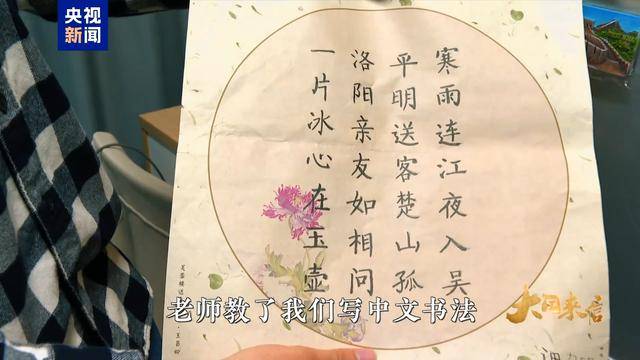 央视
新闻
寒雨连江夜入吴
平明送客楚山孤
洛阳亲友如相问
一片冰心在玉壶
老师教了我们写中文书法
大国来信